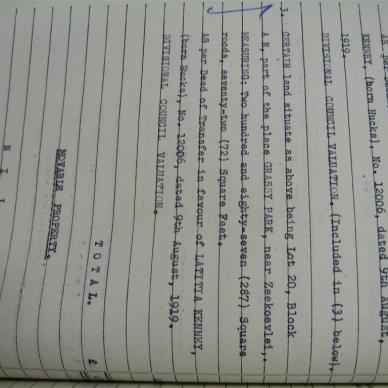 AS per
KENNEY, (born Hucks), No. 12006, dated 9th August,
1919.
DIVISIONAL COUNCIL VALUATION. (Included in (3) below).
3. CERTAIN land situate as above being Lot 20, Block
A.N. part of the place GRASSY PARK, near Zeekoevlei,.
MEASURING: Two hundred and eighty-seven (287) Square
roods, seventy-two (72) Square Feet.
AS per Deed of Transfer in favour of LATITIA KENNEY,
(born Hucks), No. 12006, dated 9th August, 1919.
DIVISIONAL COUNCIL VALUATION.
T O T A L. £
MOVABLE PROPERTY.
N i l